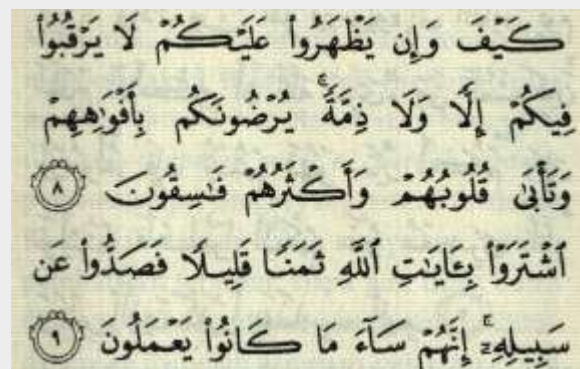 كَيۡفَ وَإِن يَظۡهَرُواْ عَلَيۡكُمۡ لَا يَرۡقُبُواْ
فِيكُمۡ إِلّٗا وَلَا ذِمَّةٗۚ يُرۡضُونَكُم بِأَفۡوَٰهِهِمۡ
وَتَأۡبَىٰ قُلُوبُهُمۡ وَأَكۡثَرُهُمۡ فَٰسِقُونَ ٨
ٱشۡتَرَوۡاْ بِـَٔايَٰتِ ٱللَّهِ ثَمَنٗا قَلِيلٗا فَصَدُّواْ عَن
سَبِيلِهِۦٓۚ إِنَّهُمۡ سَآءَ مَا كَانُواْ يَعۡمَلُونَ ٩